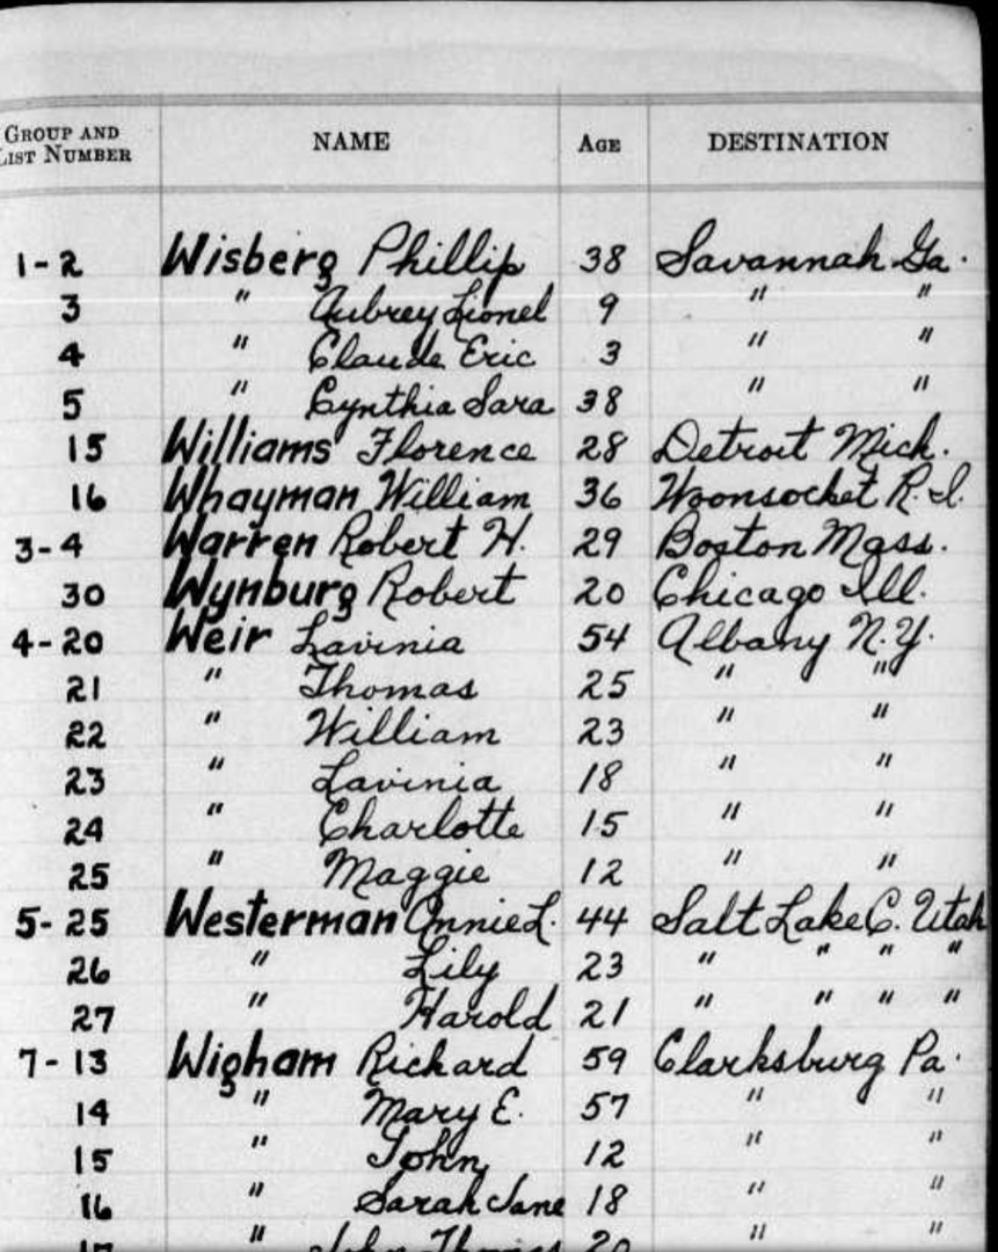 GROUP AND LIST NUMBER NAME AGE DESTINATION
1-2 Wisberg Phillip 38 Savannah Ga.
3 " Aubrey Lionel 9 " "
4 " Claude Eric 3 " "
5 " Cynthia Sara 38 " "
15 Williams Florence 28 Detroit Mich.
16 Whayman William 36 Woonsocket R.I.
3-4 Warren Robert H. 29 Boston Mass.
30 Wynburg Robert 20 Chicago Ill.
4-20 Weir Lavinia 54 Albany N.Y.
21 " Thomas 25 " "
22 " William 23 " "
23 " Lavinia 18 " "
24 " Charlotte 15 " "
25 " Maggie 12 " "
5-25 Westerman Annie L. 44 Salt Lake C. Utah
26 " Lily 23 " " " "
27 " Harold 21 " " " "
7-13 Wigham Richard 59 Clarksburg Pa.
14 " Mary E. 57 " "
15 " John 12 " "
16 " Sarah Jane 18 " "
17 " John Thomas 20 " "